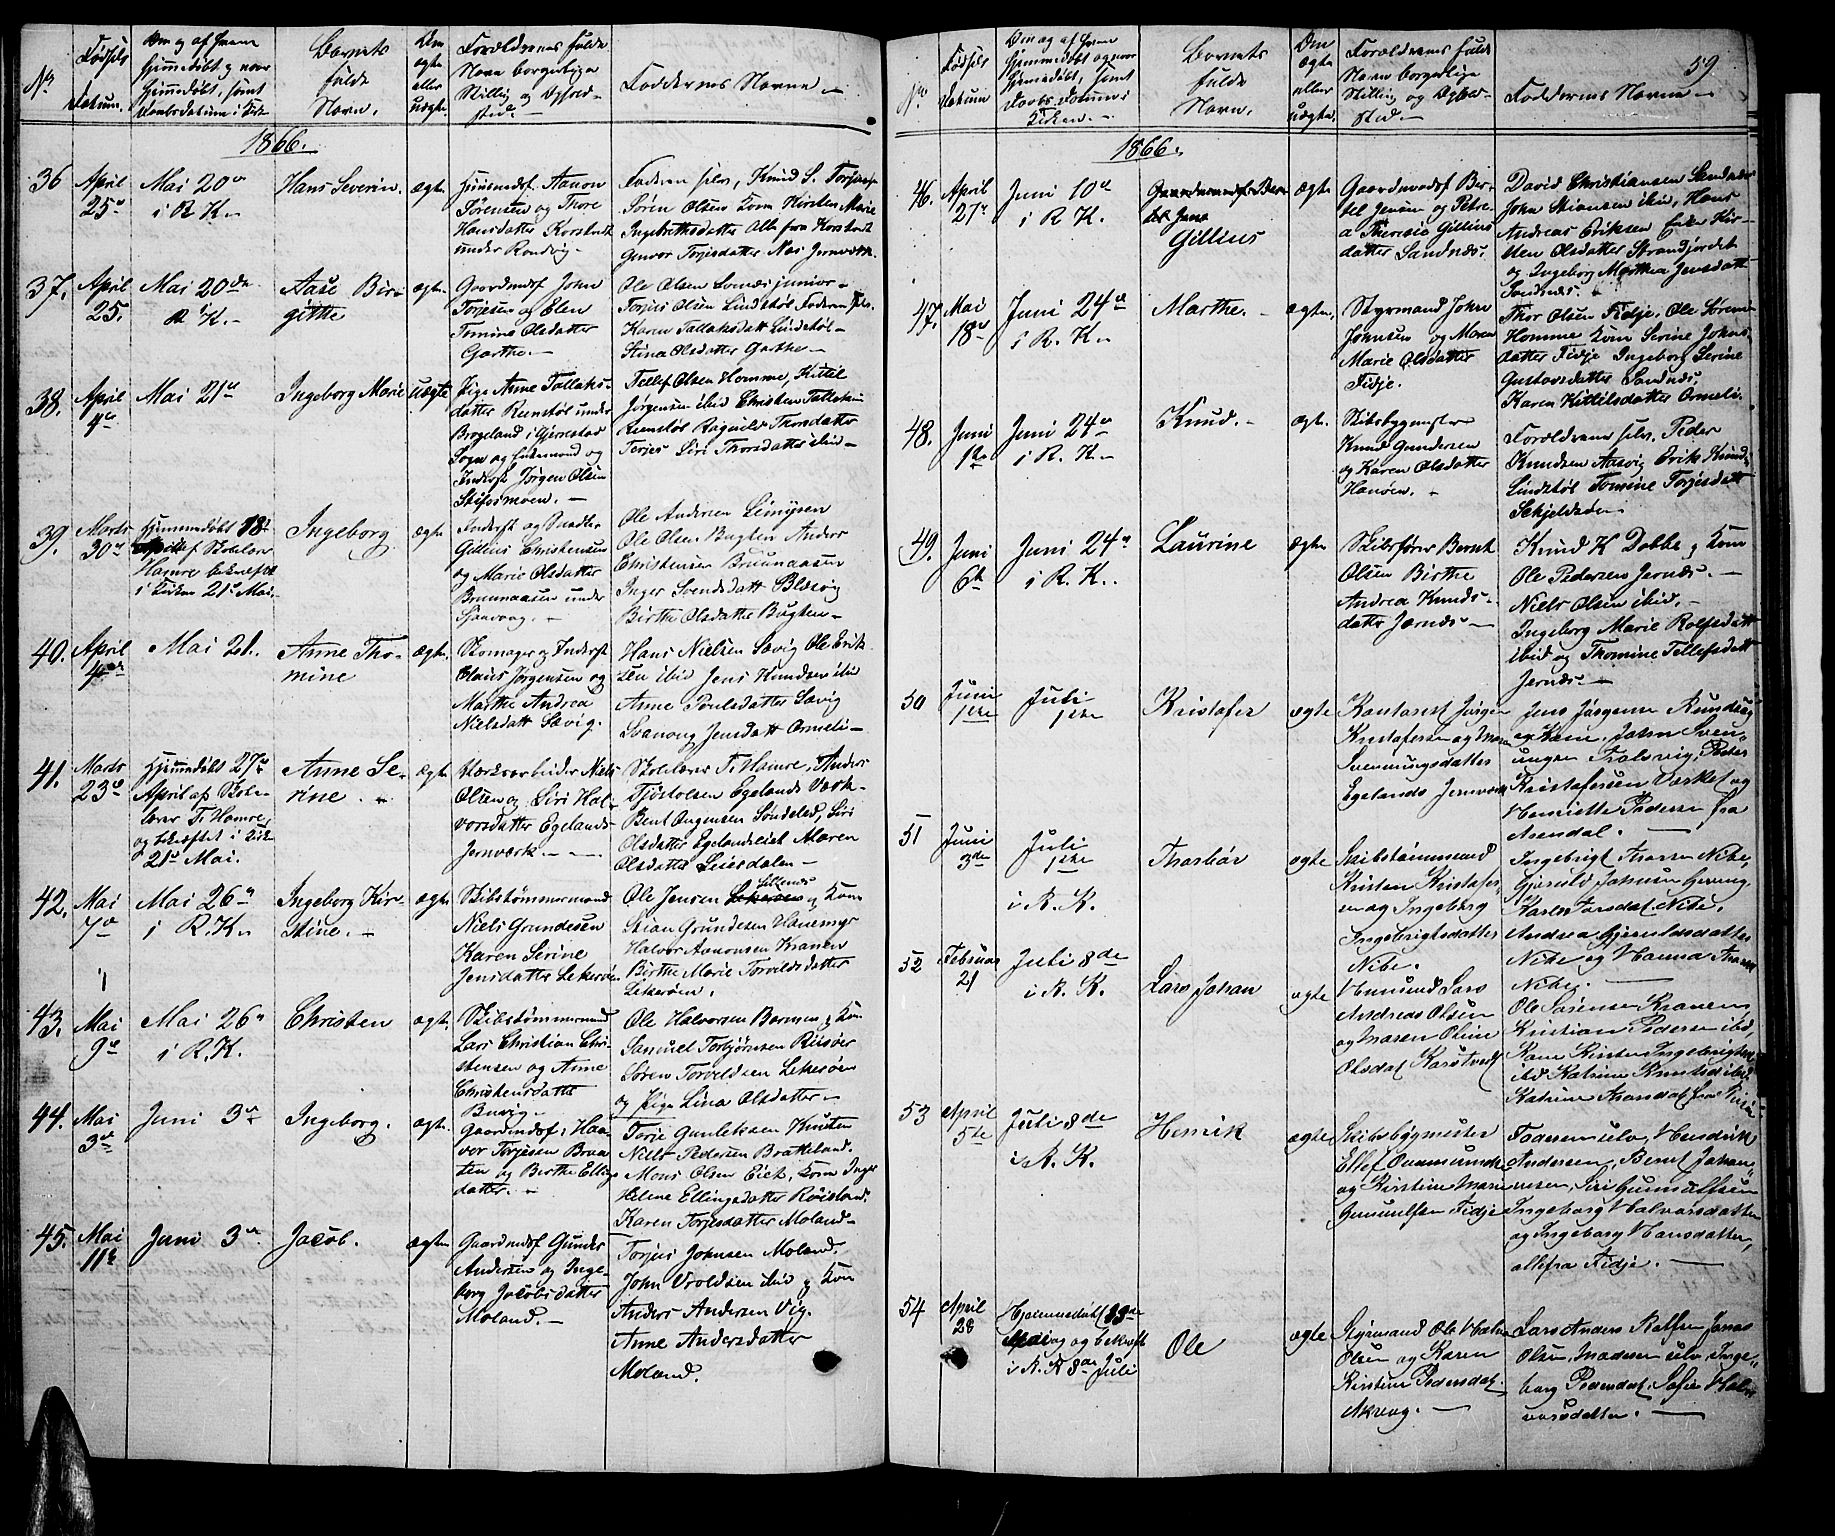 No
Fødsels
Datum.
Om og af hvem
Hjemmedøbt og naar
Hjemmedøbt, samt
Daabsdatum i Kirk
Barnets
fulde
Navn.
Om
ægte
eller
uægte.
Forældrenes fulde
Navn borgerlige
Stilling og Ophold-
sted
Faddernes Navne.-
1866.
36
April
25de
Mai 20de
i R K.
Hans Severin.
ægte.
Aanon
Sørensen og Thore
Hansdatter Korstvedt
under Rondvig.-
Faderen selv, Knud S.
Søren Olsen Kone Kirsten Marie
Ingebrethsdatter Alle fra Korstvedt
Gunvor Torjesdatter Næs Jernværk.
37.
April
25.
Mai 20de
R K.
Aase Bir-
githe
ægte.
Gaardmdsf. John
Torjesen og Elen
Tomine Olsdatter
Garthe.-
Ole Olsen junior
Torjus Olsen Lindstøl Faderen selv.
Karen Tallaksdatt Lindstøl-
Stina Olsdatter Garthe-
38.
April
4de
Mai 21de
Ingeborg Marie
uægte
Pige Anne Tallaks-
datter Remstøl under
Brogeland i Gjerrestad
Sogn og
Inderst Jørgen Olsen
Tellef Olsen Homme, Kittil
Jørgensen ibid Christen Tallaksen
Remstøl Ragnild Thorsdatter
Siri Thorsdatter ibid-
39.
Marts
30de
Hjemmedøbt 18de
April af Skolelærer
Hamre bekræftet
i Kirken 21de Mai.
Ingeborg
ægte
Inderst og
Gillius Christensen
og Marie Olsdatter
Bruunaasen under
Ole Andersen
Ole Olsen Bugten Anders
Christensen Bruunaasen
Inger Svendsdatt
Birthe Olsdatter Bugten-
40.
April
4de
Mai 21.
Anne Tho-
mine
ægte.
Skomager og Inderst
Claus Jørgensen og
Marthe Andrea
Nielsdatt Savig.
Hans Nielsen Savig Ole Erik-
sen ibid Jens Knudsen ibid
Anne Poulsdatter Savig
Svanoug Jensdatt Ormeli-
41.
Marts
23de
Hjemmedøbt 27de
April af Skole-
lærer T. Hamre
og bekræftet i Kirk
21de Mai.
Anne Se-
rine.-
ægte
Værksarbeider Niels
Olsen og Siri Hal-
vorsdatter Egelands-
Jernværk.-
Skolelærer T. Hamre, Anders
Tjøstolsen Egelands Værk-
Bent Søndeled, Siri
Olsdatter Egelandsliet Maren
Olsdatter Leiesdalen-
42.
Mai
7de
Mai 26de
i R.K.
Ingeborg Kir-
stine.-
ægte.
Skibstømmermand
Niels Grundesen
Karen Serine
Jensdatter Lekerøen
Ole Jensen og Kone
Stian Grundesen
Halvor Aanonsen Kranen
Birthe Marie Torvildsdatter
Lekerøen.
43.
Mai
9de
Mai 26de
i R.K.
Christen
ægte.
Skibstømmermand
Lars Christian Chri-
stensen og Anne
Christensdatter
Buvig-
Ole Halvorsen Barmen og Kone
Samuel Torbjørnsen Riisøer
Søren Torveldsen Lekerøen
og Pige Lina Olsdatter-
44.
Mai
3de
Juni 3de
Ingeborg.
ægte.
Gaardmdsf. Haa-
vor Torjesen Braa-
ten og Birthe Ellings
datter.-
Torje Gunleksen Knuten
Niels Pedersen Bratteland.
Mons Olsen Eiet, Kone Inger
Helene Ellingsdatter Røisland.
Karen Torjesdatter Moland-
45.
Mai
11te
Juni 3de
Jacob.
ægte.
Gaardmdsf. Gunder
Andersen og Inge-
borg Jacobsdatter
Moland.-
Torjus Johnsen Moland.
John Vroldsen ibid og Kone
Anders Andersen Vig.
Anne Andersdatter
Moland.
59
No
Fødsels
Datum
Om og af hvem
Hjemmedøbt og naar
Hjemmedøbt, samt
Daabs Datum i
Kirken.-
Barnets
fulde
Navn.
Om
ægte
eller
uægte.
Forældrenes fulde
Navn borgerlige
Stilling og Ophold-
sted.-
Faddernes Navne-
1866.
46.
April
27de
Juni 10de
i R. K.
Jens
Gillius
ægte
Gaardmdsf Ber-
tel Jensen og Petre-
a Theresia Gillius
datter Sandnæs.
David Christiansen Sandnæs
John Stiansen ibid, Hans
Andreas Eriksen Enke Kir-
sten Olsdatter Strandjordet
og Ingeborg Marthea Jensdatt
Sandnæs.
47.
Mai
18de
Juni 24de
i R. K.
Marthe.-
ægte.
Styrmand John
Johnsen og Maren
Marie Olsdatter
Fidje.
Thor Olsen Fidje, Ole Sørensen
Homme Kone Serine Johns
datter Fidje Ingeborg Serine
Gustavsdatter Sandnæs,
Karen Kittilsdatter Ormeli.
48.
Juni
1ste
Juni 24de
i R. K.
Knud.-
ægte.
Skibsbygmester
Knud Gundersen
og Karen Olsdatter
Hanøen.-
Forældrene selv, Peder
Knudsen Aasvig Erik Knud
Lindstøl Tomine Torjesdatt
49.
Juni
6te
Juni 24de
i R. K.
Laurine
ægte
Skibsfører Bernt
Olsen Birthe
Andrea Knuds-
datter Jernæs-
Knud K Dobbe og Kone
Ole Pedersen Jernæs.-
Niels Olsen ibid.-
Ingeborg Marie Rolfsdatt
ibid og Thomine Tellefsdatt
Jernæs.-
50
Juni
1ste
Juli
1ste
Kristofer
ægte
Jørgen
Kristofersen og Maren
Svenningsdatter
Egelands Jernværk
Jens Jørgensen
og Kone, John Sven-
ungen Peder
Kristofersen Værket og
Henriette Pedersen fra
Arendal.-
51
Juni
3de
Juli
1ste
i R. K.
Thorbør
ægte
Skibstømmermand
Kristen Kristofer-
sen og Ingeborg
Ingebrigtsdatter
Nibe.
Ingebrigt Nibe,
Gjeruld Johnsen
Karen Nibe,
Andrea Gjeruldsdatter
Nibe og Hanna
Nibe.-
52
Februar
21
Juli 8de
i R. K.
Lars Johan
ægte
Huusmd Lars
Andreas Olsen
og Maren Oline
Olsdat Karstved
Ole Sørensen Kranen,
Kristian Pedersen ibid,
Kone Kirsten Ingebrigtsen
ibid Katrine Knutsd ibid,
Katrine
53
April
5te
Juli 8de
i R. K.
Henrik
ægte
Skibsbygmester
Ellef
og Kirstine Marie
Fidje
Faderen selv, Hendrik
Andersen, Bernt Johan-
nesen, Siri
Ingeborg Halvorsdatter
og Ingeborg Hansdatter,
alle fra Fidje.-
54
April
28
Hjemmedøbt
Mai og bekræft
i R. K 8de Juli
Ole
ægte
Styrmand Ole
Olsen og Karen
Kirstine Pedersdat.
Akvaag.-
Lars Anders Rolfsen Jonas
Olsen, Moderen selv, Inge-
borg Pedersdat, Sofie Hal-
vorsdatter.-